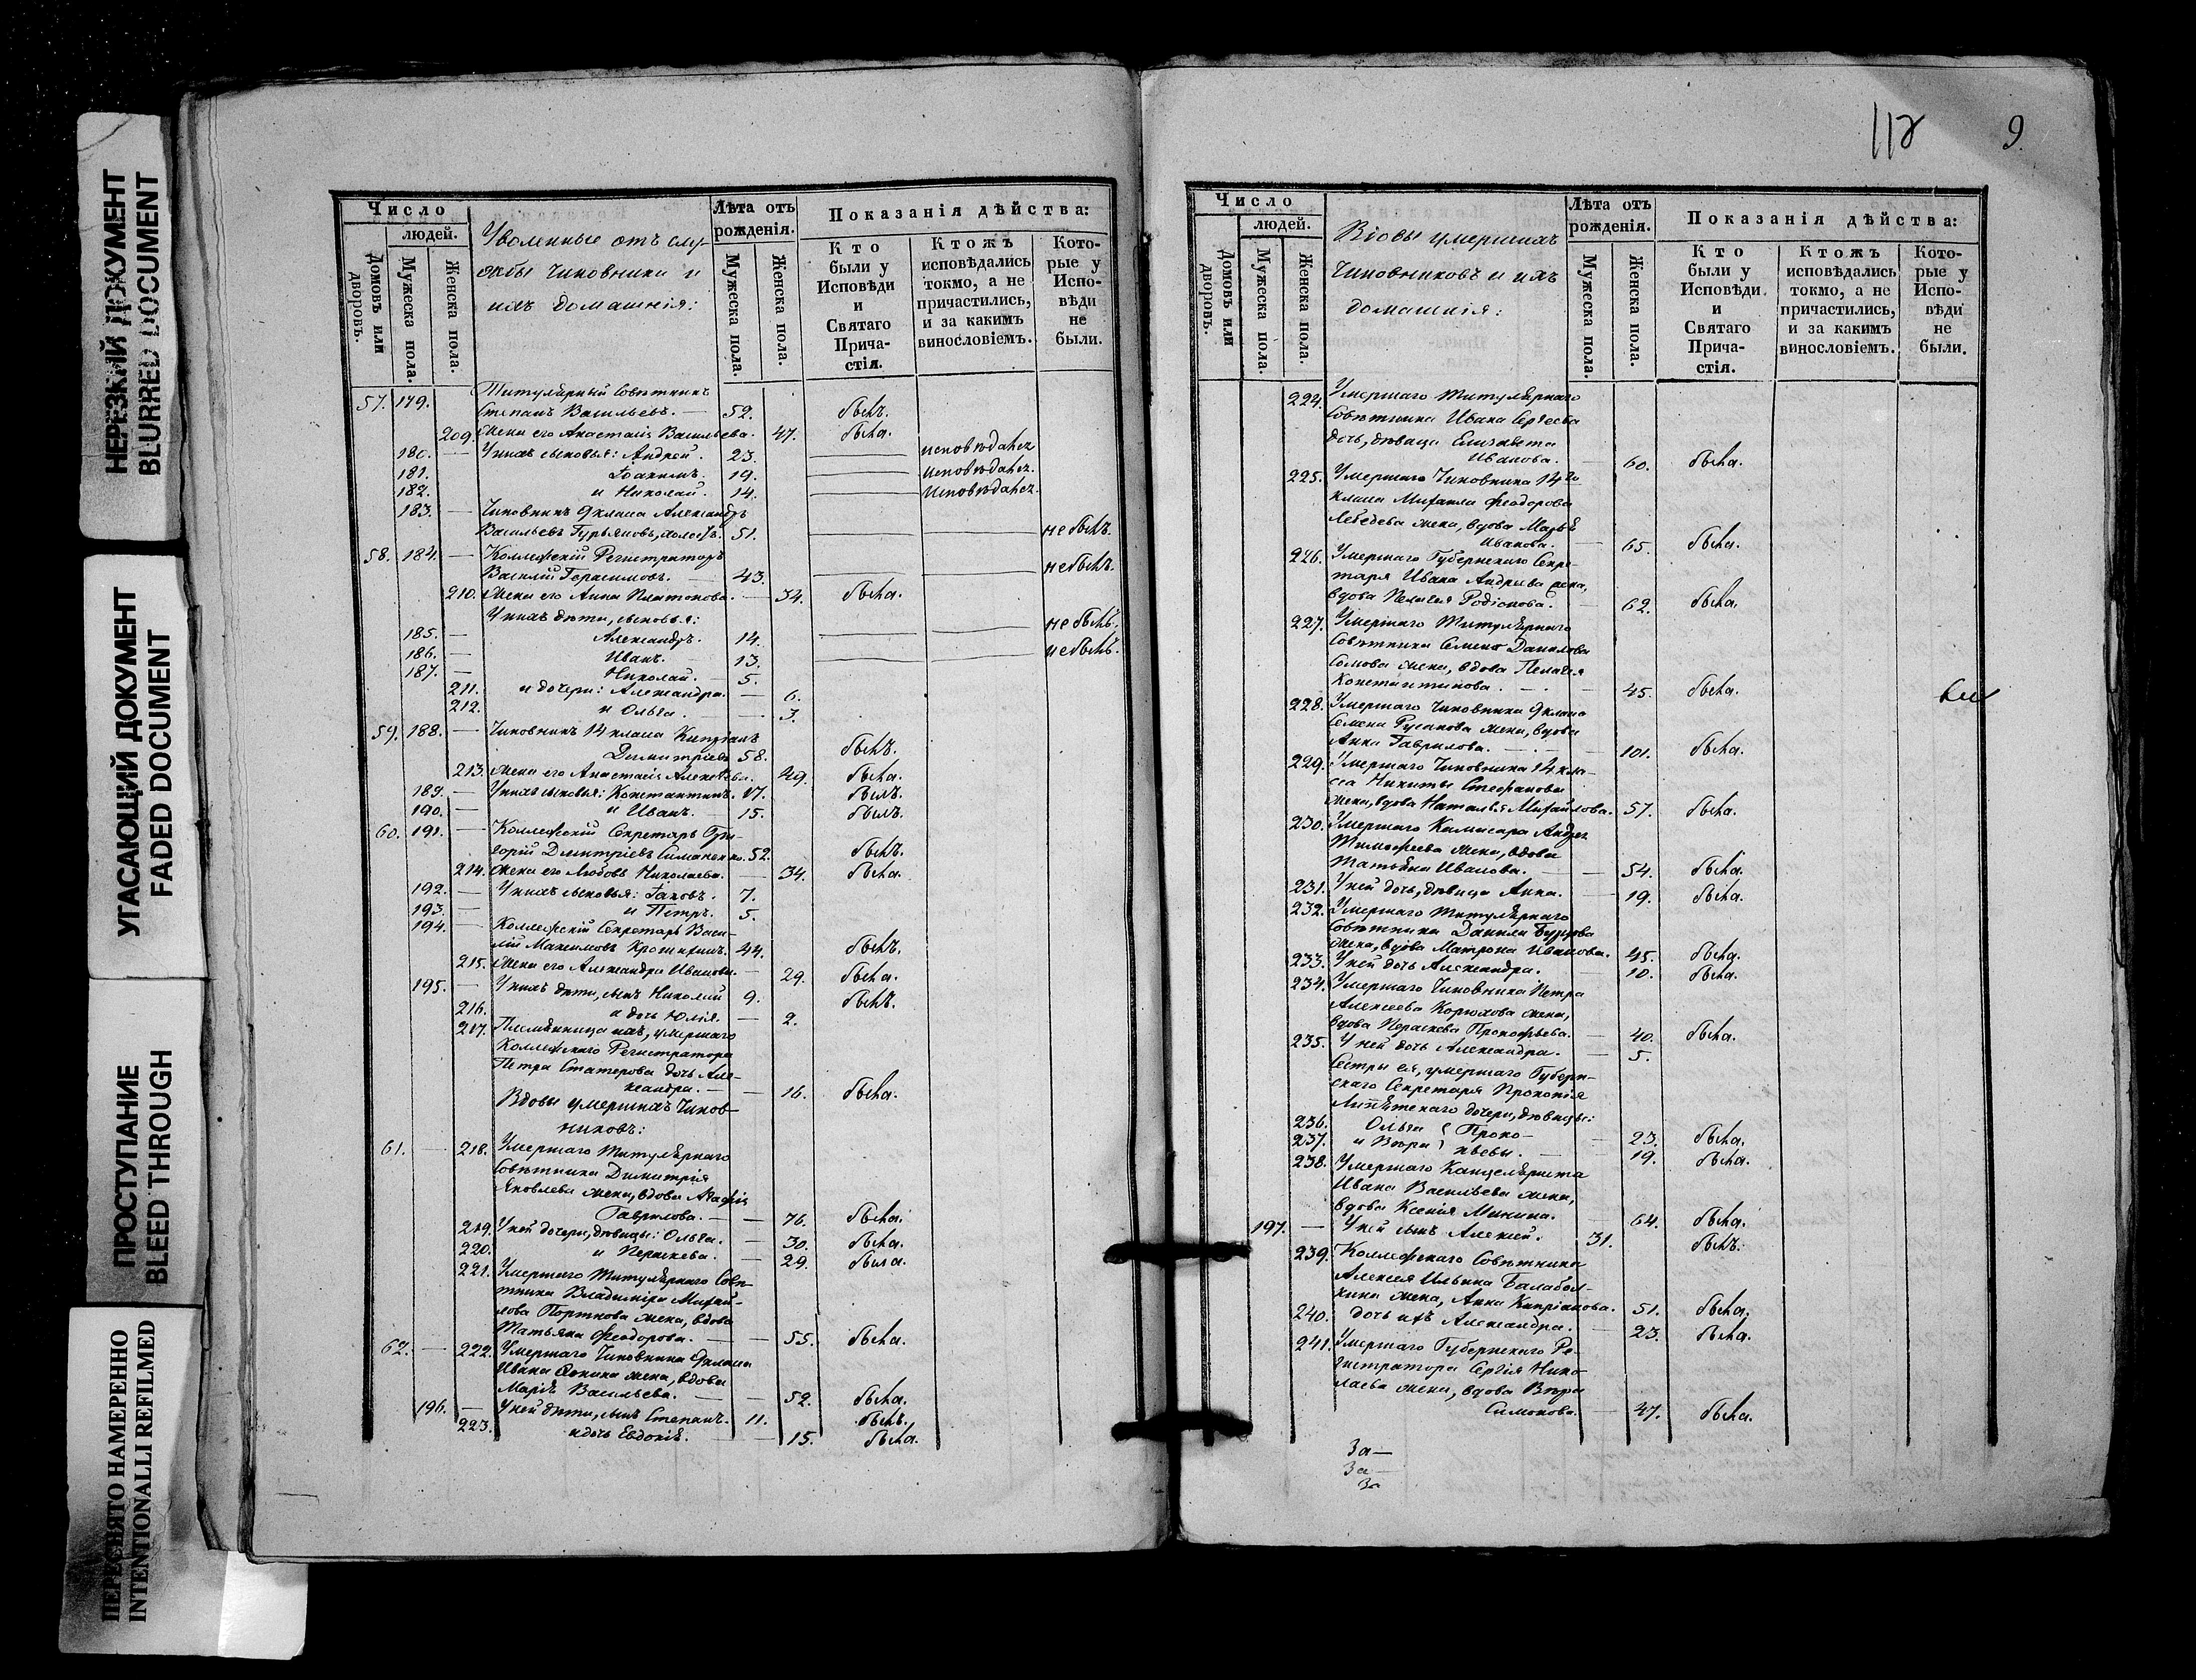 НЕРЕЗКИЙ ДОКУМЕНТ
BLURRED DOCUMENT
УГАСАЮЩИЙ ДОКУМЕНТ
FADED DOCUMENT
ПРОСТУПАНИЕ
BLEED THROUGH
ПЕРЕСНЯТО НАМЕРЕННО
INTENTIONALLI REFILMED
Число
людей.
Домовъ или дворовъ.
Мужеска пола.
Женска пола.
Уволенные отъ слу-
жбы Чиновники и
ихъ домашнія:
Лѣта отъ рожденія.
Мужеска пола.
Женска пола.
Показанія дѣйства:
Кто были у Исповѣди и Святаго Прича-стія.
Ктожъ исповѣдались токмо, а не причастились, и за какимъ винословіемъ.
Кото-рые у Испо-вѣди не были.
57. 179. Титулярный Совѣтникъ
Степанъ Васильевъ. — 52. былъ.
209. Жена его Анастасія Васильева. 47. была.
180. — У нихъ сыновья: Андрей. 23. исповѣдался
181. Іоакимъ. 19. исповѣдался.
182. и Николай. 14. исповѣдался.
183. — Чиновникъ 9 класа Александръ
Васильевъ Гурьяновъ, холостъ. 51. не былъ.
58. 184. — Коллежскій Регистраторъ
Василій Герасимовъ. — 43. не былъ.
210. Жена его Анна Платонова. — 34. была.
У нихъ дѣти, сыновья:
185. — Александръ. 14. не былъ.
186. — Иванъ. 13. не былъ.
187. — Николай. — 5.
211. и дочери: Александра. — 6.
212. и Ольга. — 3.
59. 188. — Чиновникъ 14 класа Кипріанъ
Димитріевъ 58. былъ.
213. Жена его Анастасія Алексѣева. 49. была.
189. — У нихъ сыновья: Константинъ. 17. былъ.
190. — и Иванъ. — 15. былъ.
60. 191. — Коллежскій Секретарь Гри-
горій Дмитріевъ Симаненко. 52. былъ.
214. Жена его Любовь Николаева. — 34. была.
192. — У нихъ сыновья: Іаковъ. 7.
193. — и Петръ. 5.
194. — Коллежскій Секретарь Васи-
лій Максимовъ 44. былъ.
215. Жена его Александра Иванова. — 29. была.
195. — У нихъ дѣти, сынъ Николай 9. былъ.
216. и дочь Юлія. — 2.
217. Племянница ихъ, умершаго
Коллежскаго Регистратора
Петра Статерова дочь Але-
ксандра. — 16. была.
Вдовы умершихъ Чинов-
никовъ:
61. — 218. Умершаго Титулярнаго
Совѣтника Димитрія
Яковлева жена, вдова Агафія
Гаврилова. — 76. была.
219. У ней дочери, дѣвицы: Ольга. — 30. была.
220. и Параскева. — 29. была.
221. Умершаго Титулярнаго Совѣ-
тника Владиміра Михай-
лова Портнова жена, вдова
Татьяна Феодорова. — 55. была.
62. — 222. Умершаго Чиновника 9 класа
Ивана жена, вдова
Марія Васильева. — 52. была.
196. — У ней дѣти, сынъ Степанъ. 11. былъ.
223. и дочь Евдокія. — 15. была.
118 9.
Число
людей.
Домовъ или дворовъ.
Мужеска пола.
Женска пола.
Вдовы умершихъ
Чиновниковъ и ихъ
домашнія:
Лѣта отъ рожденія.
Мужеска пола.
Женска пола.
Показанія дѣйства:
Кто были у Исповѣди и Святаго Прича-стія.
Ктожъ исповѣдались токмо, а не причастились, и за какимъ винословіемъ.
Кото-рые у Испо-вѣди не были.
224. Умершаго Титулярнаго
Совѣтника Ивана Сергѣева
дочь, дѣвица Елизавета
Иванова. — 60. была.
225. Умершаго Чиновника 14го
класа Михаила Феодорова
Лебедева жена, вдова Марья
Иванова. — 65. была.
226. Умершаго Губернскаго Секре-
таря Ивана Андреева жена,
вдова Пелагея Родіонова. — 62. была.
227. Умершаго Титулярнаго
Совѣтника Семена Данилова
Сомова жена, вдова Пелагея
Константинова. — 45. была.
228. Умершаго Чиновника 9 класа
Семена Русанова жена, вдова
Анна Гаврилова. — 101. была.
229. Умершаго Чиновника 14 кла-
са Никиты Стефанова
жена, вдова Наталья Михайлова. 57. была.
230. Умершаго Комисара Андрея
Тимофеева жена, вдова
Татьяна Иванова. — 54. была.
231. У ней дочь, дѣвица Анна. — 19. была.
232. Умершаго Титулярнаго
Совѣтника Данила Бурцова
жена, вдова Матрона Иванова. 45. была.
233. У ней дочь Александра. 10. была.
234. Умершаго Чиновника Петра
Алексеева Корюхова жена,
вдова Параскева Прокофьева. — 40. была.
235. У ней дочь Александра. — 5.
Сестры ея, умершаго Губерн-
скаго Секретаря Прокопія
дочери, дѣвицы:
236. Ольга Проко- 23. была.
237. и Вѣра пьевы. — 19. была.
238. Умершаго Канцеляриста
Ивана Васильева жена,
вдова Ксенія Минина. 64. была.
197. — У ней сынъ Алексій. 31. былъ.
239. Коллежскаго Совѣтника
Алексея Ильина Балабол-
кина жена, Анна Кипріанова. 51. была.
240. дочь ихъ Александра. — 23. была.
241. Умершаго Губернскаго Ре-
гистратора Сергія Нико-
лаева жена, вдова Вѣра
Симонова. — 47. была.
За—
За—
За